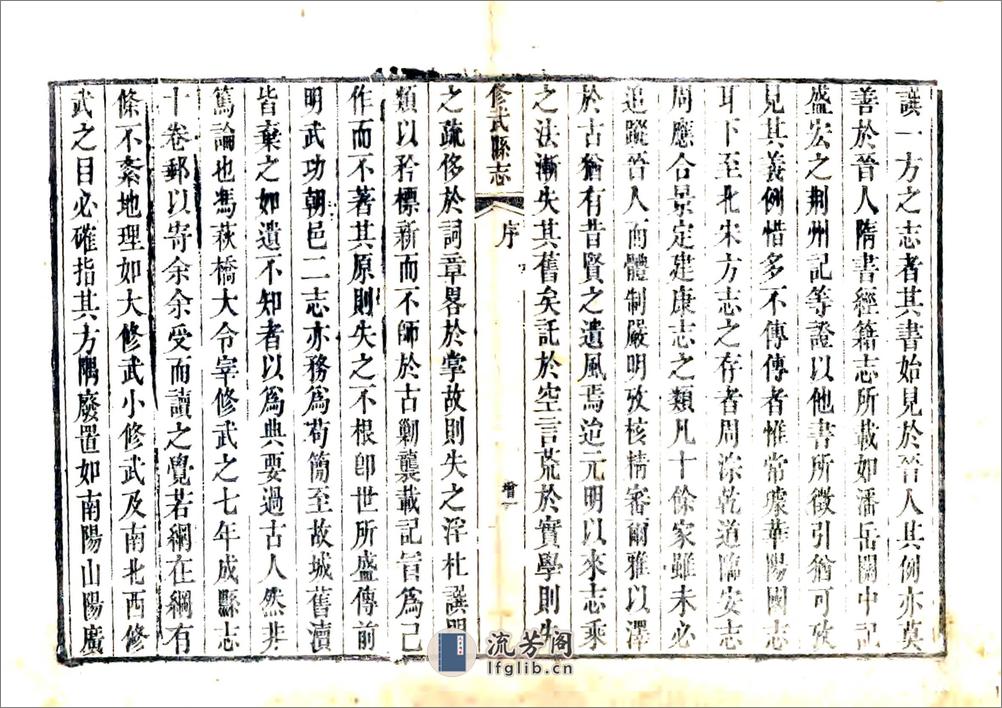 譔一方之志者其書始見於晉人其例亦莫
善於晉人隋書經籍志所載如潘岳關中記
盛宏之荆州記等證以他書所徵引猶可攷
見其義例惜多不傳傳者惟常璩華陽國志
耳下至北宋方志之存者周淙乾道臨安志
周應合景定建康志之類凡十餘家雖未必
追蹤晉人而體制嚴明攷核精審爾雅以澤
於古猶有昔賢之遺風焉迨元明以來志乘
之法漸失其舊矣託於空言荒於實學則失
修武縣志
序
增一
之疏侈於詞章畧於掌故則失之浮杜譔門
類以矜標新而不師於古勦襲載記旨爲己
作而不著其原則失之不根卽世所盛傳前
明武功朝邑二志亦務爲苟簡至故城舊瀆
皆棄之如遺不知者以爲典要過古人然非
篤論也馮萩橋大令宰修武之七年成縣志
十卷郵以寄余余受而讀之覺若網在綱有
條不紊地理如大修武小修武及南北西修
武之目必確指其方隅廢置如南陽山陽廣
流芳阁
lfglib.cn